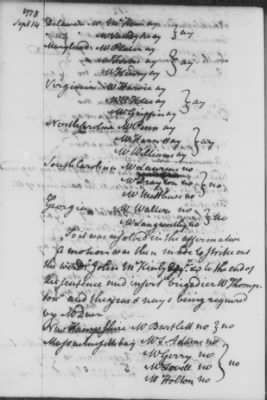 1778
Sept 14
Delaware Mr McKean ay } ay
Mr Vandyke ay
Maryland Mr Plater ay } ay
Mr Henry ay
Virginia Mr Harvie ay } ay
Mr Griffin ay
North Carolina Mr Penn ay } ay
Mr Harnett ay
Mr Williams ay
South Carolina Mr Laurens no } no
Mr Drayton no
Mr Mathews no
Georgia Mr Walton no } no
Mr Langworthy no
So it was resolved in the affirmative
A motion was then made to strike out
the words John McKinly Esqr &c to the end of
the sentence and insert brigadier W Thomp
ton and the yeas & nays being required
by Mr Duer
New Hampshire Mr Bartlett no } no
Massachusetts bay Mr S. Adams no } no
Mr Gerry no
Mr Lovell no
Mr Holton no